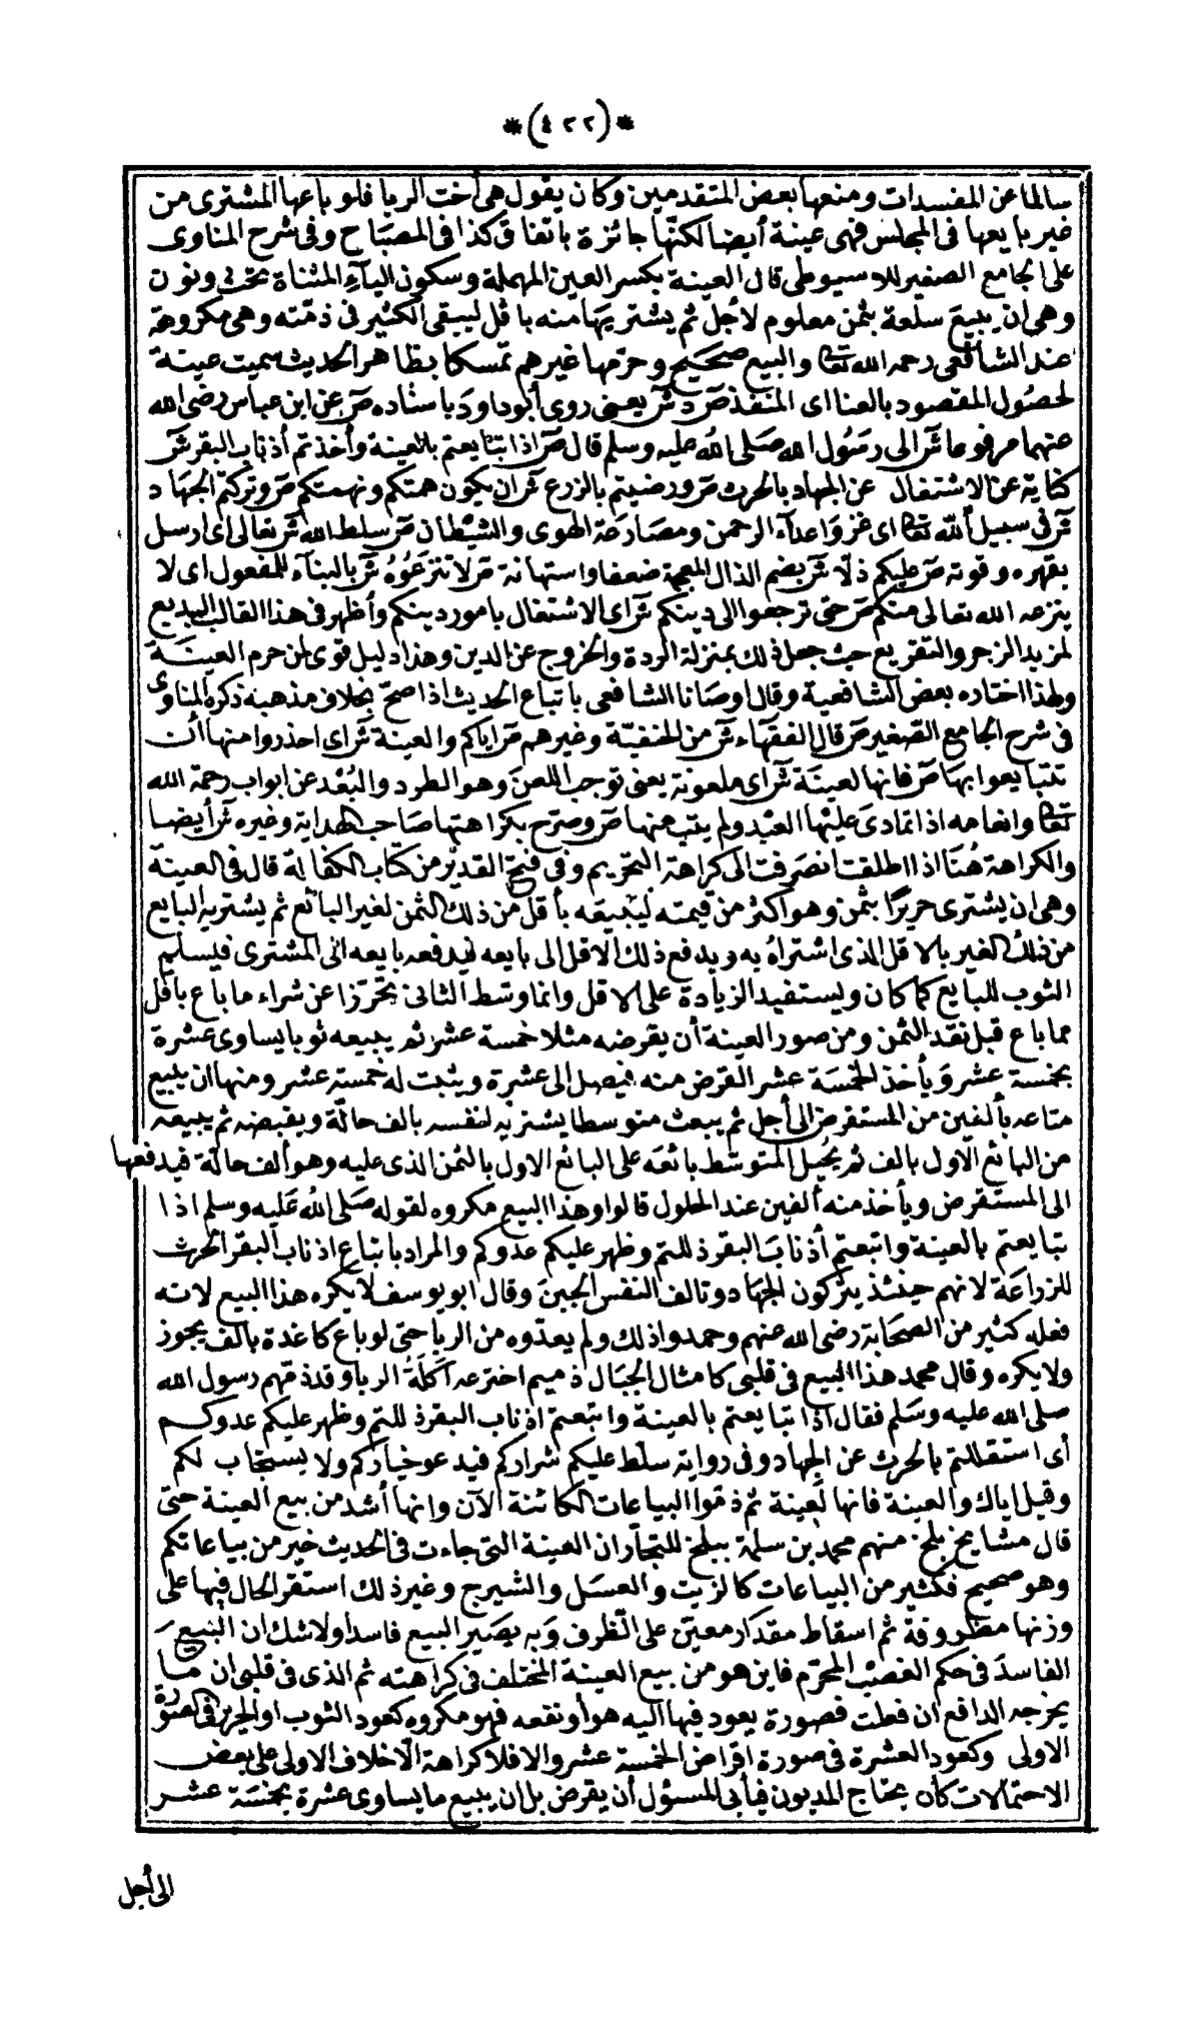 *(٤٢٢)*
سالما عن المفسدات ومنعها بعض المتقدمين وكان يقول هى أخت الربا فلو باعها المشترى من
غير بايعها فى المجلس فهى عينة أيضا لكنها جائزة باتفاق كذا فى المصباح وفى شرح المناوى
على الجامع الصغير للاسيوطى قال العينة بكسر العين المهملة وسكون اليآء المثناة تحت ونون
وهى ان يبيع سلعة بثمن معلوم لاجل ثم يشتريها منه باقل ليبقى الكثير فى ذمته وهى مكروهة
عند الشافعى رحمه الله تعالى والبيع صحيح وحرمها غيرهم تمسكا بظاهر الحديث سميت عينة
لحصول المقصود بالعنا اى النقد ص د ش يعنى روى أبو داود باسناده ص عن ابن عباس رضى الله
عنهما مرفوعا ش الى رسول الله صلى الله عليه وسلم قال ص اذا تبايعتم بالعينة وأخذتم أذناب البقر ش
كناية عن الاشتغال عن الجهاد بالحرث ص ورضيتم بالزرع ش ان يكون همتكم ونهمتكم ص وتركتم الجهاد
ش فى سبيل الله تعالى اى غزو اعدآء الرحمن ومصارعة الهوى والشيطان ص سلط الله ش تعالى اى ارسل
بقهره وقوته ص عليكم ذلا ش بضم الذال المعجمة ضعفا واستهانة ص لا تنزعوه ش بالبنآء للمفعول اى لا
ينزعه الله تعالى منكم ص حتى ترجعوا الى دينكم ش اى الاشتغال بامور دينكم وأظهر فى هذا القالب البديع
لمزيد الزجر والتقريع حيث جعل ذلك بمنزلة الردة والخروج عن الدين وهذا دليل قوى لمن حرم العينة
ولهذا اختاره بعض الشافعية وقال اوصانا الشافعى باتباع الحديث اذا صح بخلاف مذهبه ذكره المناوى
فى شرح الجامع الصغير ص قال الفقهاء ش من الحنفية وغيرهم ص اياكم والعينة ش اى احذروا منها أن
تتبايعوا بها ص فانها لعينة ش اى ملعونة يعنى توجب اللعن وهو الطرد والبعد عن ابواب رحمة الله
تعالى وانعامه اذا تمادى عليها العبد ولم يتب منها ص وصرح بكراهتها صاحب الهداية وغيره ش أيضا
والكراهة هنا اذا اطلقت انصرفت الى كراهة التحريم وفى فتح القدير من كتاب الكفالة قال فى العينة
وهى ان يشترى حريرا بثمن وهو اكثر من قيمته ليبيعه بأقل من ذلك الثمن لغير البائع ثم يشتريه البايع
من ذلك الغير بالاقل الذى اشتراه به ويدفع ذلك الاقل الى بايعه ليدفعه بايعه الى المشترى فيسلم
الثوب للبايع كما كان ويستفيد الزيادة على الاقل وانما وسط الثانى تحرزا عن شراء ما باع باقل
مما باع قبل نقد الثمن ومن صور العينة أن يقرضه مثلا خمسة عشر ثم يبيعه ثوبا يساوى عشرة
بخمسة عشر ويأخذ الخمسة عشر القرض منه فيصل الى عشرة ويثبت له خمسة عشر ومنها ان يبيع
متاعه بألفين من المستقرض الى أجل ثم يبعث متوسطا يشتريه لنفسه بالف حالة ويقبضه ثم يبيعه
من البائع الاول بالف ثم يحيل المتوسط بائعه على البائع الاول بالثمن الذى عليه وهو ألف حالة فيدفعها
الى المستقرض ويأخذ منه ألفين عند الحلول قالوا وهذا البيع مكروه لقوله صلى الله عليه وسلم اذا
تبايعتم بالعينة واتبعتم أذناب البقر ذللتم وظهر عليكم عدوكم والمراد باتباع اذناب البقر الحرث
للزراعة لانهم حينئذ يتركون الجهاد وتالف النفس الجبن وقال ابو يوسف لا يكره هذا البيع لانه
فعله كثير من الصحابة رضى الله عنهم وحمدوا ذلك ولم يعدوه من الربا حتى لو باع كاغدة بالف يجوز
ولا يكره وقال محمد هذا البيع فى قلبى كامثال الجبال ذميم اخترعه آكلة الربا وقد ذمهم رسول الله
صلى الله عليه وسلم فقال اذا تبايعتم بالعينة واتبعتم اذناب البقر ذللتم وظهر عليكم عدوكم
أى استقللتم بالحرث عن الجهاد وفى رواية سلط عليكم شراركم فيدعو خياركم ولا يستجاب لكم
وقيل اياك والعينة فانها لعينة ثم ذموا البياعات الكائنة الآن وانها أشد من بيع العينة حتى
قال مشايخ بلخ منهم محمد بن سلمة ببلخ للتجار ان العينة التى جاءت فى الحديث خير من بياعاتكم
وهو صحيح فكثير من البياعات كالزيت والعسل والشيرج وغير ذلك استقر الحال فيها على
وزنها مظروفة ثم اسقاط مقدار معين على الظرف وبه يصير البيع فاسدا ولا شك ان البيع
الفاسد فى حكم الغصب المحرم فاين هو من بيع العينة المختلف فى كراهته ثم الذى فى قلبى ان ما
يخرجه الدافع ان فعلت فصورة يعود فيها اليه هو أو نقعه فهو مكروه كعود الثوب او الحرير فى الصورة
الاولى وكعود العشرة فى صورة اقراض الخمسة عشر والا فلا كراهة الا خلاف الاولى على بعض
الاحتمالات كأن يحتاج المديون فيأبى المسؤل أن يقرض بل ان يبيع ما يساوى عشرة بخمسة عشر
الى أجل